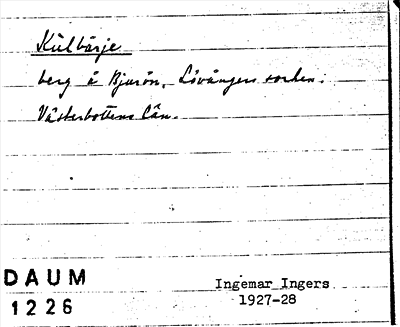 Külbärje
berg å Bjurön, Lövångers socken.
Västerbottens län.
DAUM
1226
Ingemar Ingers
1927-28